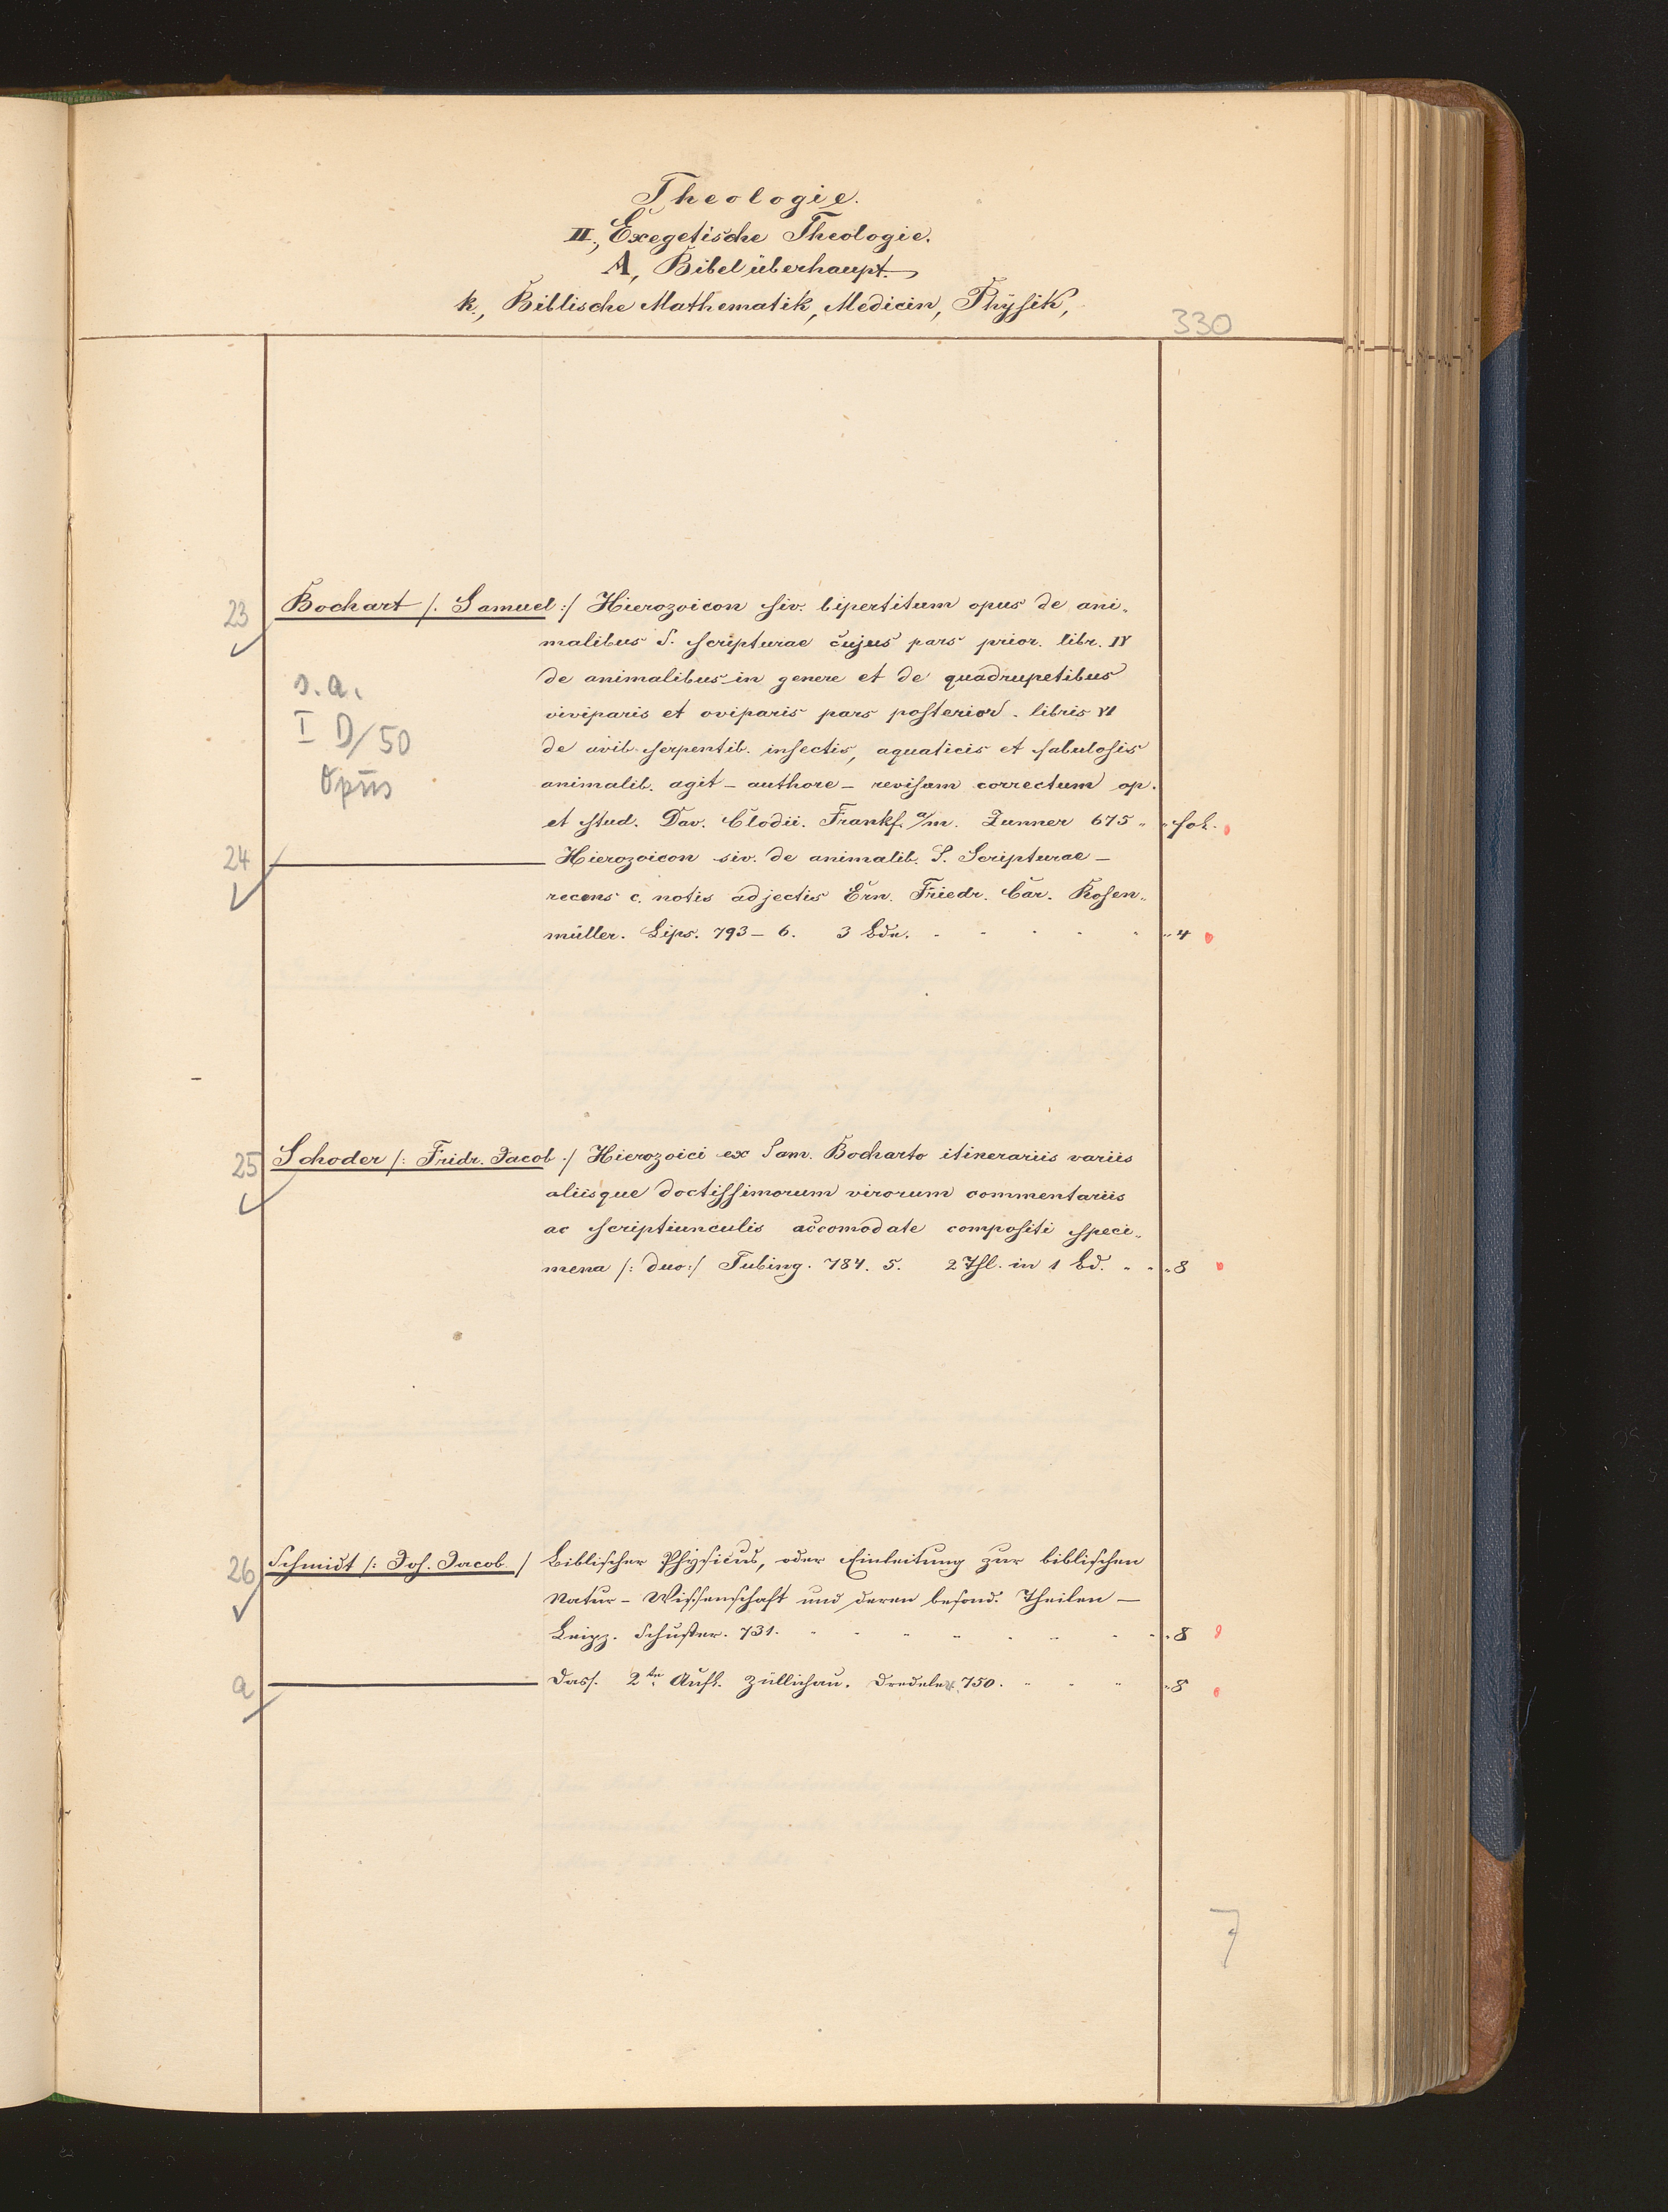 Theologie.
II., Exegetische Theologie.
A, Bibel überhaupt.
k., Biblische Mathematik, Medicin, Physik,
330
23 Bochart /: Samuel :/ Hierozoicon siv. bipertitum opus de ani„
malibus S. scripturae cujus pars prior. libr. IV
s. a.
de animalibus in genere et de quadrupetibus
I D/50
viviparis et oviparis pars posterior. libris VI
de avib. serpentib. insectis, aquaticis et fabulosis
Opus
animalib. agit – authore – revisum correctum op.
et stud. Dav. Clodii. Frankf. a/m. Zunner 675 „ „ fol.
24 ——— Hierozoicon siv. de animalib. S. Scripturae –
recens c. notis adjectis Ern. Friedr. Car. Rosen„
müller. Lips. 793 – 6. 3 Bde. „ 4
25 Schoder /: Fridr. Jacob :/ Hierozoici ex Sam. Bocharto itinerariis variis
aliisque doctissimorum virorum commentariis
ac scriptiunculis accomodate compositi speci„
mena /: duo :/ Tubing. 784. 5. 2 Thl. in 1 Bd. „ „ „ 8
26 Schmidt /: Joh. Jacob / Biblischer Physicus, oder Einleitung zur biblischen
Natur – Wissenschaft und deren besond. Theilen —
Leipz. Schuster. 731. „ 8
a ——— Dass. 2te Aufl. Züllichau. 750. „ 8
7